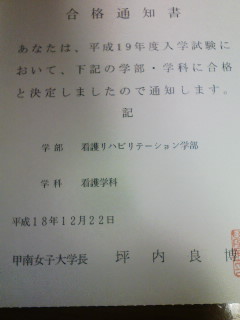 合格通知書
あなたは、平成19年度入学試験に
おいて、下記の学部・学科に合格
と決定しましたので通知します。
記
学部 看護リハビリテーション学部
学科 看護学科
平成18年12月22日
甲南女子大学長 坪内良博